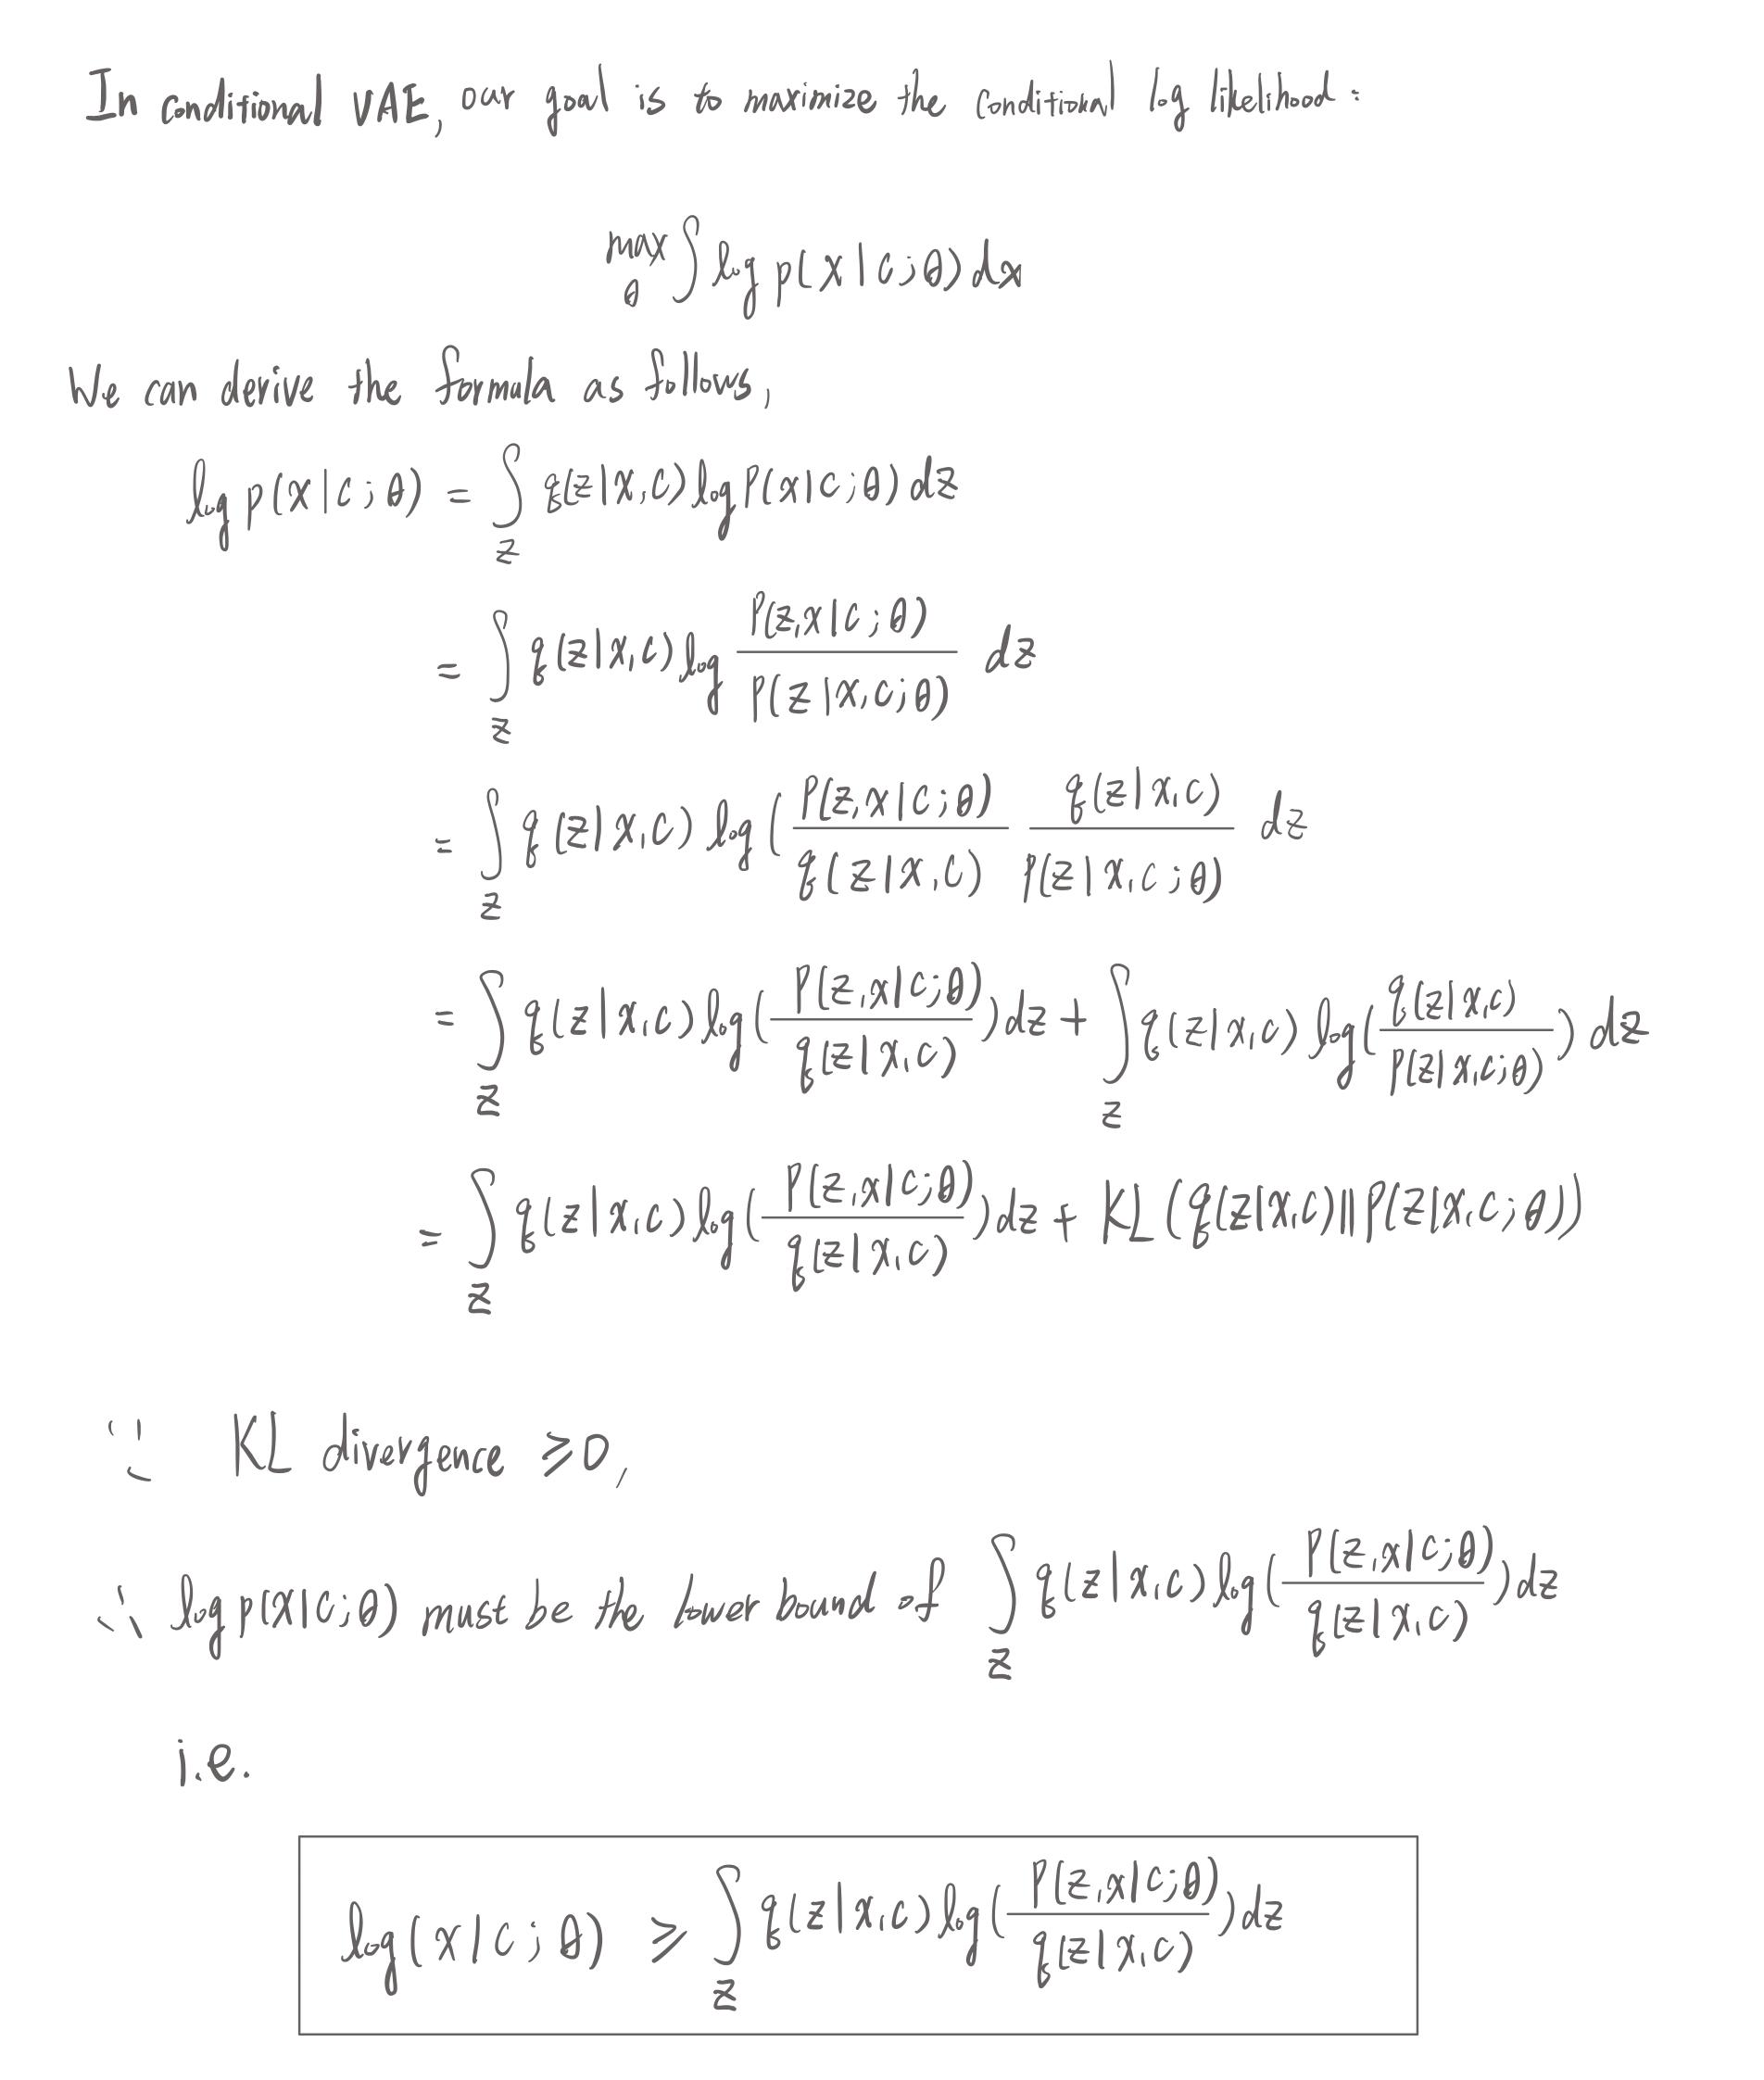 In conditional VAE, our goal is to maximize the conditional log likelihood :
max_θ ∫ log p(x|c;θ) dx
We can derive the formula as follows,
log p(x|c;θ) = ∫_z q(z|x,c) log p(x|c;θ) dz
= ∫_z q(z|x,c) log p(z,x|c;θ) / p(z|x,c;θ) dz
= ∫_z q(z|x,c) log ( p(z,x|c;θ) / q(z|x,c) q(z|x,c) / p(z|x,c;θ) dz
= ∫_z q(z|x,c) log( p(z,x|c;θ) / q(z|x,c) ) dz + ∫_z q(z|x,c) log( q(z|x,c) / p(z|x,c;θ) ) dz
= ∫_z q(z|x,c) log( p(z,x|c;θ) / q(z|x,c) ) dz + KL(q(z|x,c)||p(z|x,c;θ))
∵ KL divergence ⩾0,
∴ log p(x|c;θ) must be the lower bound of ∫_z q(z|x,c) log( p(z,x|c;θ) / q(z|x,c) ) dz
i.e.
log(x|c;θ) ⩾ ∫_z q(z|x,c) log( p(z,x|c;θ) / q(z|x,c) ) dz